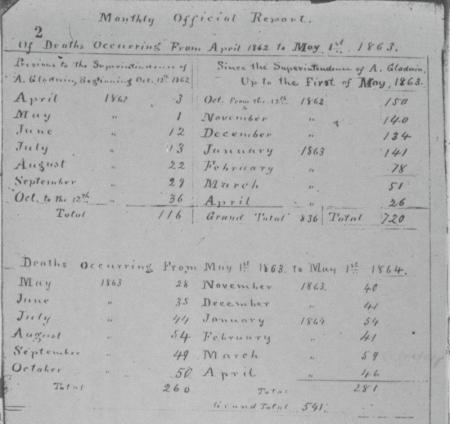 Monthly Official Report.
2
Of Deaths Occurring From April 1862 to May, 1st 1863.
Previous to the Superintendence of
A. Gladwin, Beginning Oct. 12th 1862
April 1862 3
May " 1
June " 12
July " 13
August " 22
September " 29
Oct. to the 12th " 36
Total 116
Since the Superintendence of A. Gladwin,
Up to the First of May, 1863.
Oct. From the 12th 1862 150
November " 140
December " 134
January 1863 141
February " 78
March " 51
April " 26
Grand Total 836 Total 720
Deaths Occurring From May 1st 1863. to May 1st 1864.
May 1863 28
June " 35
July " 44
August " 54
September " 49
October " 50
Total 260
November 1863. 40
December " 41
January 1864 54
February " 41
March " 59
April " 46
Total 281
Grand Total 541.